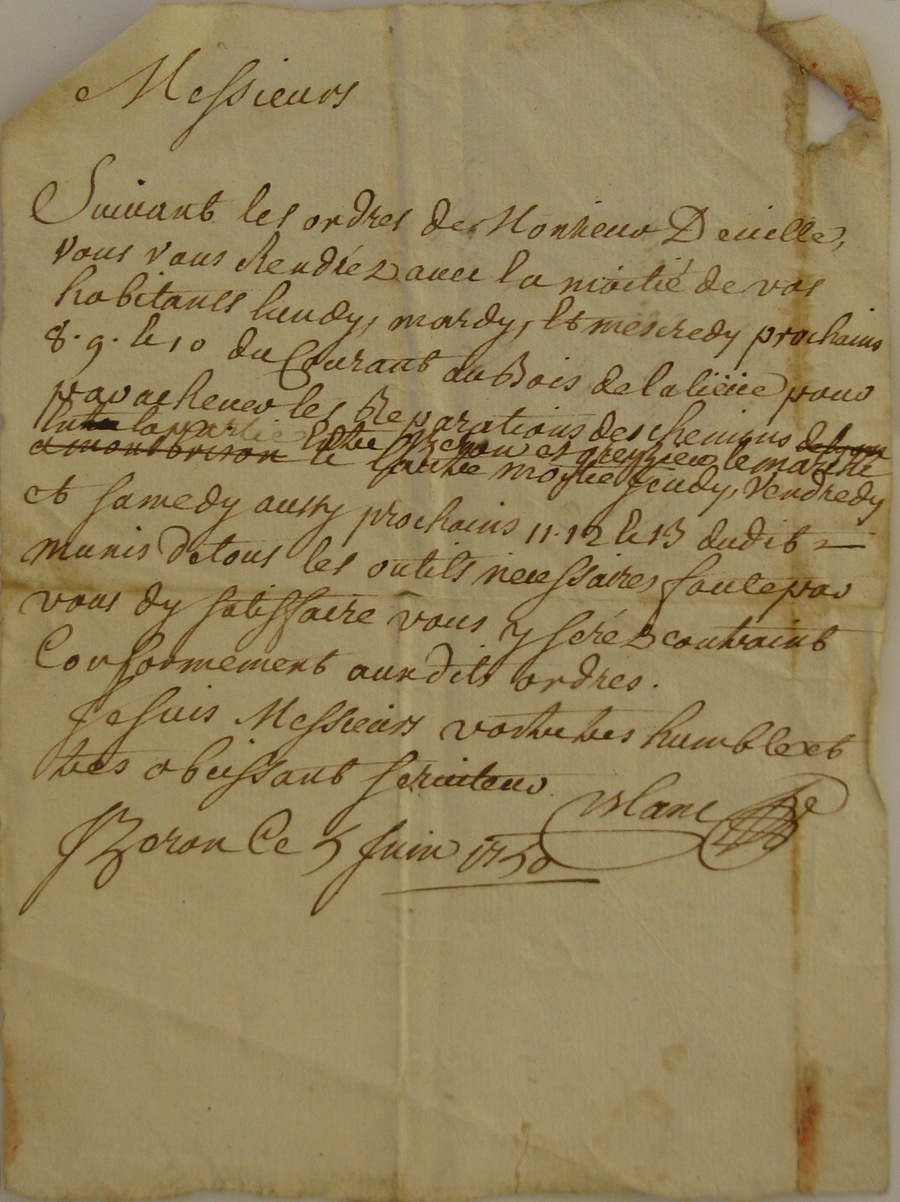 Messieurs
Suivant les ordres de Monsieur Deville,
vous vous Rendréz avec la moitié de vos
habitants lundy, mardy, et mescredy prochains
8. 9. et 10 du Courant au Bois de la pour
par achever les Reparations des chemins
la partie Entre et le marché
a montbrison et l'autre moitié Jeudy, Vendredy
et samedy aussy prochains 11. 12 et 13 dudit
munis de tous les outils necessaires faute par
vous dy satisfaire vous y seréz contraint
Conformement auxdits ordres.
Je suis Messieurs vostre tres humble et
tres obeissant serviteur
Blanc
Ce 5 Juin 1750